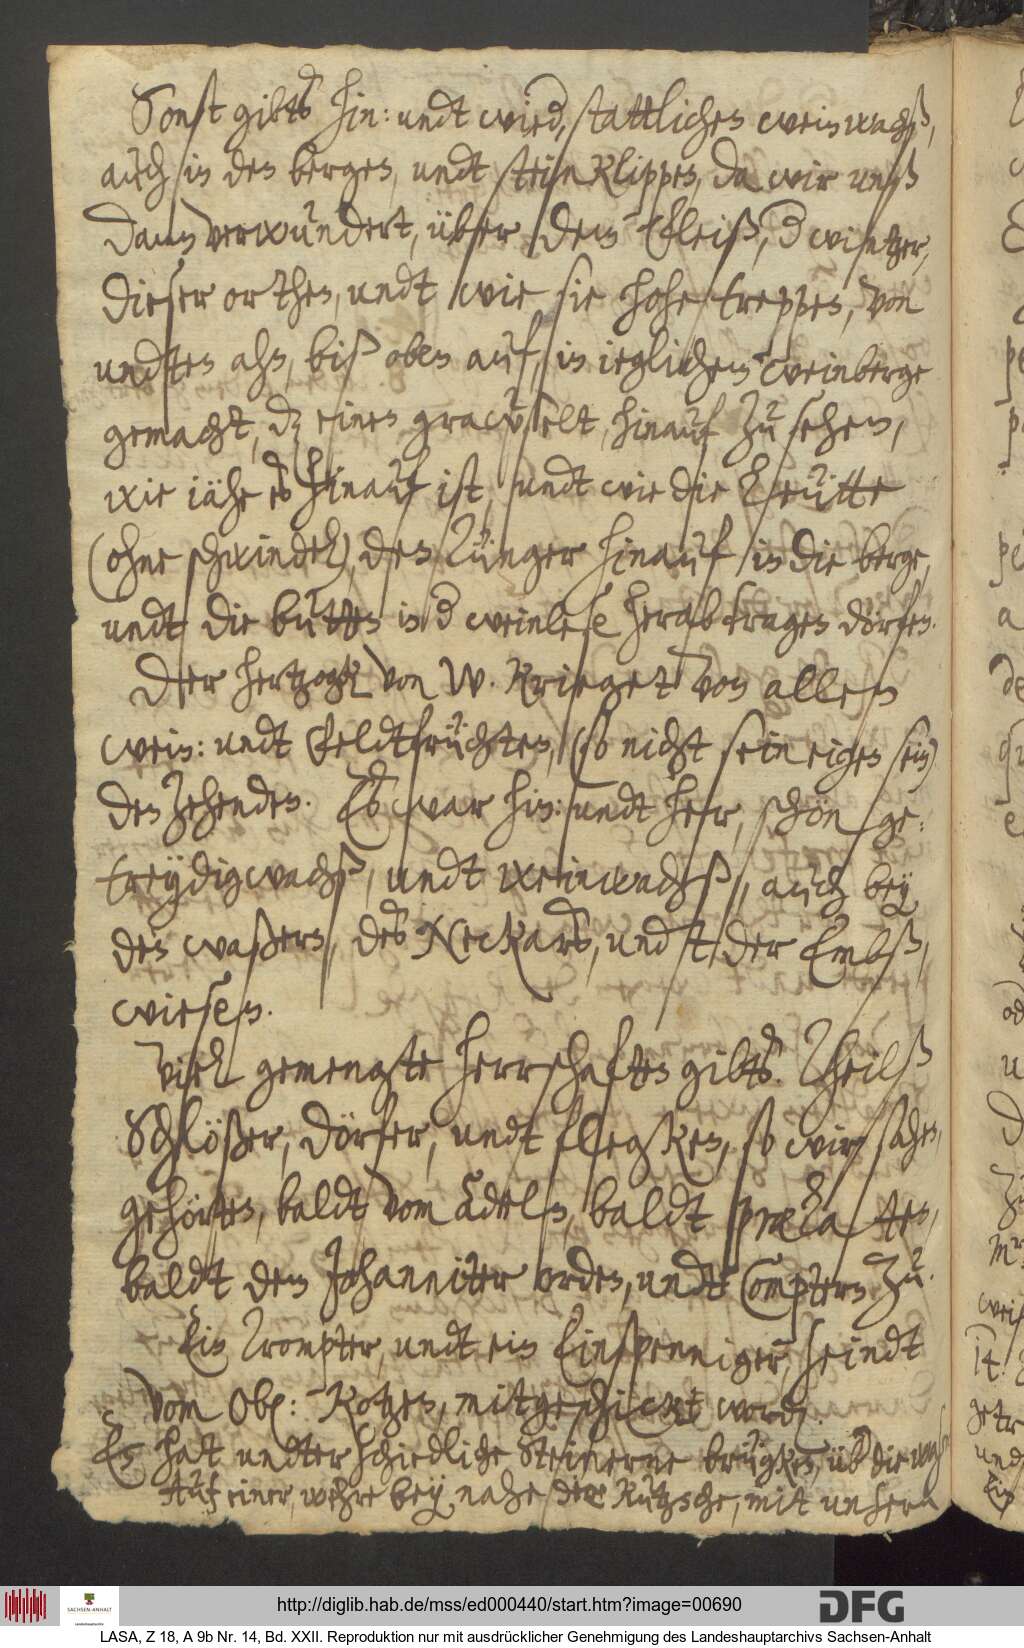 Sonst gibts hin: undt wied, stattlichen weinwachß,
auch in den bergen, undt steinklippen, da wir unß
dann verwundert, über dem fleiß, d wintzer,
dieser orthen, undt wie sie hohe treppen, von
undten ahn, biß oben auf, in ieglichem weinberge
gemacht, dz einen grawselt, hinauf zu sehen,
wie iähe es hinauf ist, undt wie die Leütte
(ohne schwindel), den Tünger hinauf in die berge,
undt die butten in d weinlese herab tragen dörfen.
Der hertzogk von W. krieget von allen
wein: undt feldtfrüchten, (so nicht sein eigen sein)
den zehenden. Es war hin: undt herr, schön ge:
treydigwachß, undt weinwachß, auch bey
den waßern, des Neckars, undt der Embß,
wiesen.
Viel gemengte herrschaften gibts. Theilß
Schlößer, dörfer, undt flegken, so wir sahen,
gehörten, baldt vom Adeln, baldt præla ten,
baldt dem Johanniter orden, undt Comptern zu.
Ein Trompter, undt ein Einspenniger, seindt
vom Ob: Rotzen, mitgeschickt word.
Es hatt undterschiedliche Steinerne brügken, üb die waß
Auf einer, wehre bey nahe der Kutzsche, mit unsern
http://diglib.hab.de/mss/ed000440/start.htm?image=00690
SACHSEN-ANHALT
Landeshauptarchiv
DFG
LASA, Z 18, A 9b Nr. 14, Bd. XXII. Reproduktion nur mit ausdrücklicher Genehmigung des Landeshauptarchivs Sachsen-Anhalt